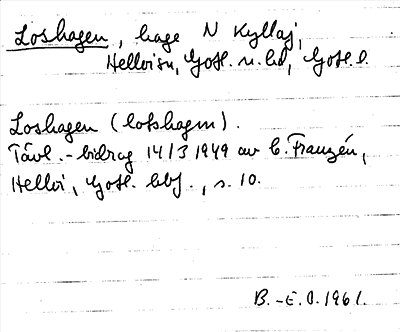 Loshagen, hage N Kyllaj,
Hellvi sn, Gotl. n. hd, Gotl. l.
Loshagen (lotshagen).
Tävl.-bidrag 14/3 1949 av C. Franzén,
Hellvi, Gotl. bbf., s. 10.
B.-E. O. 1961.